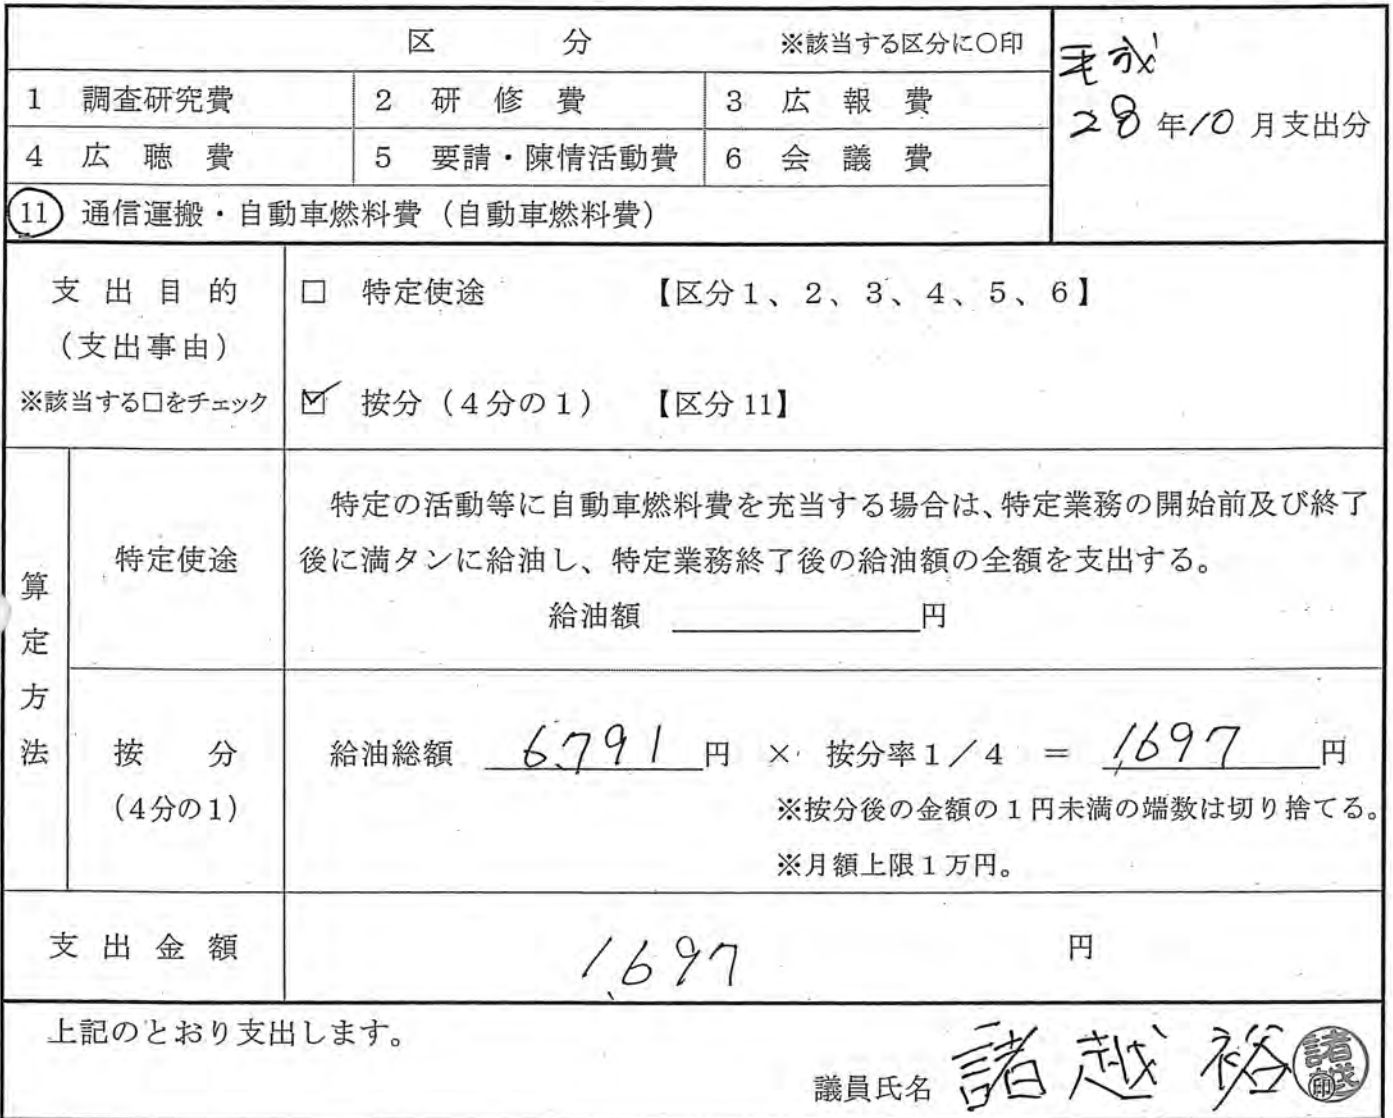 区 分 ※該当する区分に○印
平成
28年10月支出分
1 調査研究費 2 研修費 3 広報費
4 広聴費 5 要請・陳情活動費 6 会議費
11 通信運搬・自動車燃料費（自動車燃料費）
支出目的
（支出事由）
※該当する□をチェック
□ 特定使途 【区分1、2、3、4、5、6】
☑ 按分（4分の1） 【区分11】
算定方法
特定使途
特定の活動等に自動車燃料費を充当する場合は、特定業務の開始前及び終了
後に満タンに給油し、特定業務終了後の給油額の全額を支出する。
給油額 円
按分
（4分の1）
給油総額 6,791 円 × 按分率1／4 ＝ 1,697 円
※按分後の金額の1円未満の端数は切り捨てる。
※月額上限1万円。
支出金額 1,697 円
上記のとおり支出します。
議員氏名 諸越 裕 諸越印